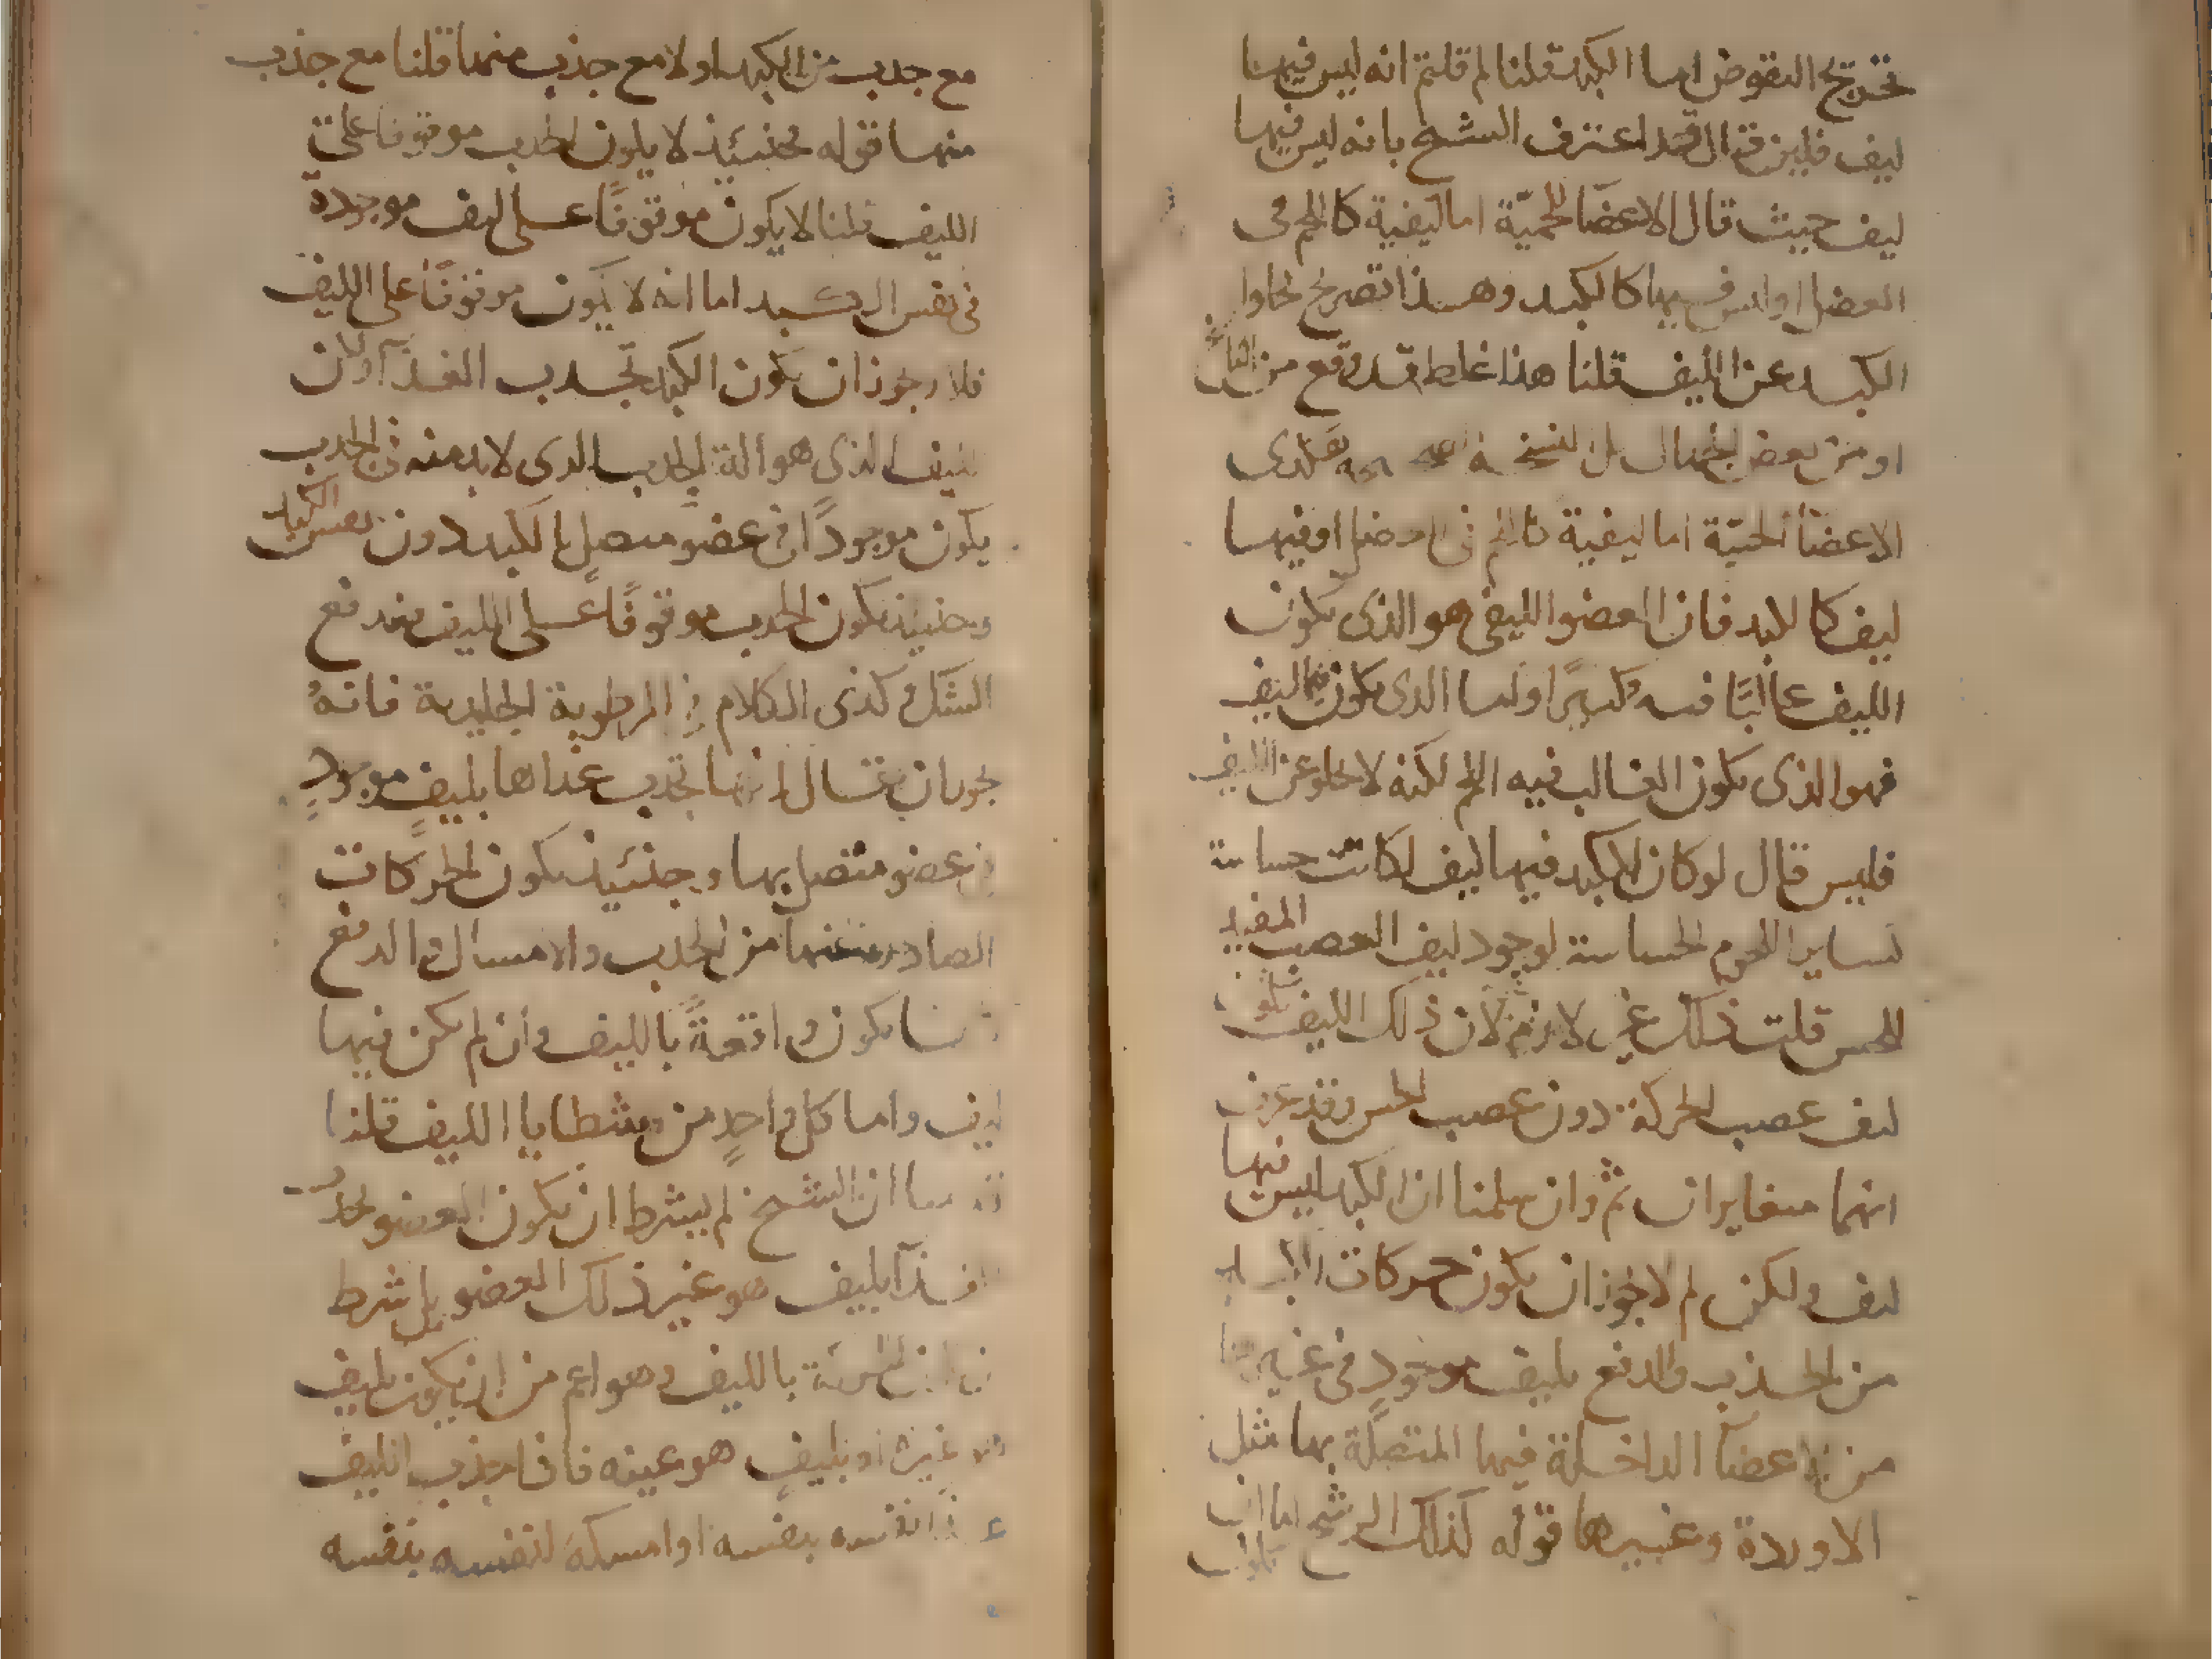 تخريج النقوض اما الكبد قلنا لم قلتم انه ليس فيها
ليف فليس قال قد اعترف الشيخ بانه ليس فيها
ليف حيث قال الاعضا اللحمية اما ليفية كاللحم في
العضل او ليس فيها كالكبد وهذا تصريح بخلو
الكبد عن الليف قلنا هذا غلط قد وقع من الناسخ
او من بعض الجهال بل النسخة هكذى
الاعضا اللحمية اما ليفية كاللحم في العضل او فيها
ليف كالكبد فان العضو الليفي هو الذى يكون
الليف غالبًا فيه وكثيرًا واما الذى يكون فيه الليف
فهو الذى يكون الغالب فيه اللحم لكنه لا يخلو عن الليف
فليس قال لو كان الكبد فيها ليف لكانت حساسة
كساير اللحوم الحساسة لوجود ليف العصب المفيد
للحس قلت ذلك غير لازم لان ذلك الليف يكون
ليف عصب الحركة دون عصب الحس وقد عرف
انهما متغايران ثم وان سلمنا ان الكبد ليس فيها
ليف ولكن لم لا يجوز ان يكون حركات الكبد
من الجذب والدفع بليف موجود في غيرها
من الاعضآ الداخلة فيها المتصلة بها مثل
الاوردة وغيرها قوله كذلك الرشح اما ان يكون
مع جذب من الكبد او لا مع جذب منها قلنا مع جذب
منها قوله فحينئذ لا يكون الجذب موقوفا على
الليف قلنا لا يكون موقوفًا على ليف موجودة
في نفس الكبد اما انه لا يكون موقوفًا على الليف
فلا ويجوز ان يكون الكبد تجذب الغذآ وان
الليف الذى هو الة الجذب الذى لا بد منه في الجذب
يكون موجودًا في عضو متصل بالكبد دون نفس الكبد
وحينئذ يكون الجذب موقوفًا على الليف فيندفع
الشك وكذى الكلام في الرطوبة الجليدية فانهُ
يجوز ان يقال انها تجذب غذاها بليفٍ موجودٍ
في عضوٍ متصل بها وحينئذ يكون الحركات
الصادرة عنها من الجذب والامساك والدفع
يكون واقعةً بالليف وان لم يكن فيها
ليف واما كل واحدٍ من شظايا الليف قلنا
ان الشيخ لم يشرط ان يكون العضو يجذب
الغذآ بليف هو غير ذلك العضو بل شرط
بالليف وهو اعم من ان يكون بليف
هو غيره او بليفٍ هو عينه فاذا جذب الليف
غذا نفسه بنفسه او امسكه لنفسه بنفسه